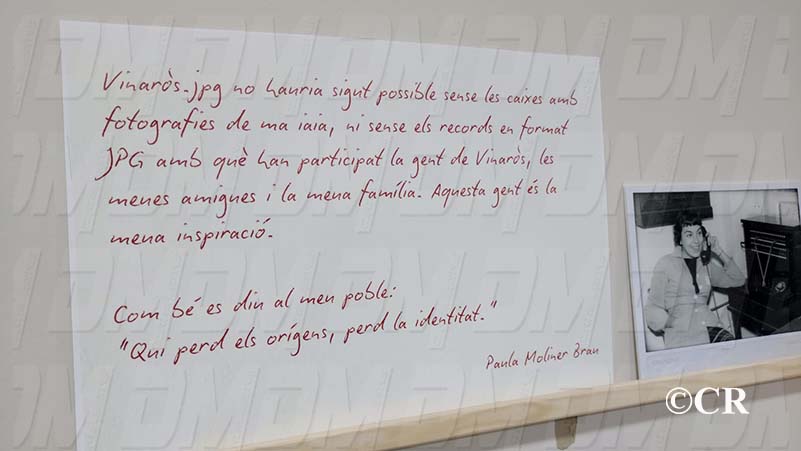 Vinaròs.jpg no hauria sigut possible sense les caixes amb
fotografies de ma iaia, ni sense els records en format
JPG amb què han participat la gent de Vinaròs, les
menes amigues i la mena família. Aquesta gent és la
mena inspiració.
Com bé es diu al meu poble:
"Qui perd els orígens, perd la identitat."
Paula Moliner Brau
©CR